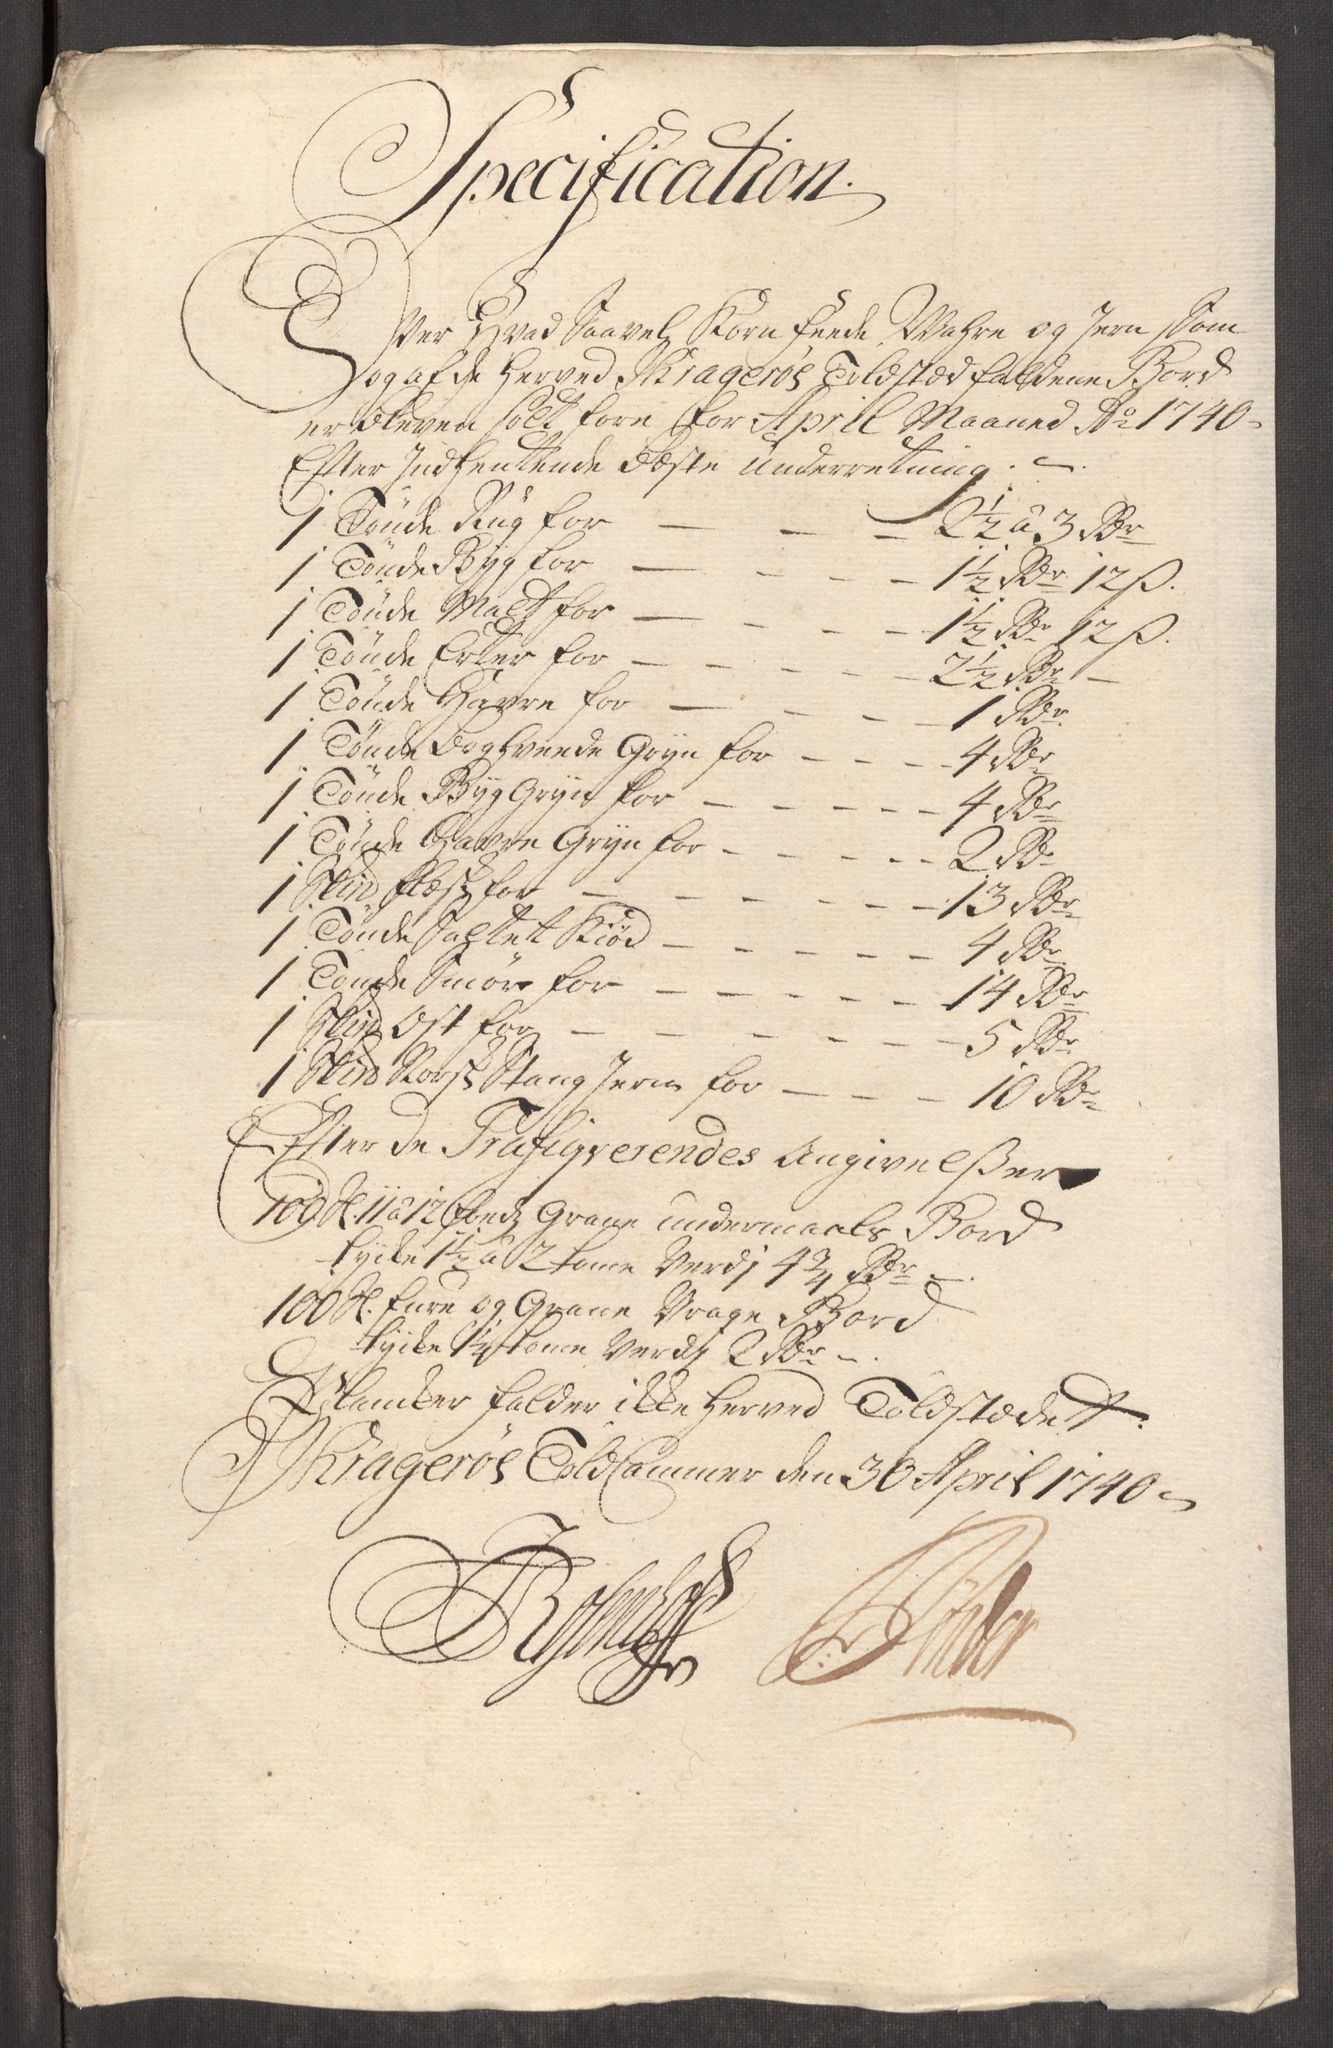 Specification.
Over Hvad Saavel Korn feede Wahre og Jern Som
og af de Herved Kragerøes Toldstæd faldene Bord
er bleven solt fore for April Maaned Ao 1740
Efter Indhentende beste Underretning.
1 Tønde Rug for — — — 2 1/2 à 3 Rdr
1 Tønde Byg for — — — 1 1/2 Rdr 12 ß.
1 Tønde Malt for — — — 1 1/2 Rdr 12 ß.
1 Tønde Erter for — — — 2 1/2 Rdr —
1 Tønde Havre for — — — 1 Rdr.
1 Tønde Boghvede Gryn for — — — 4 Rdr
1 Tønde Byg Gryn for — — — 4 Rdr
1 Tønde Havre Gryn for — — — 2 Rdr
1 Sk℔d Flesk for — — — 13 Rdr
1 Tønde Saltet Kiød — — — 4 Rdr
1 Tønde Smør for — — — 14 Rdr
1 Sk℔d Ost for — — — 5 Rdr
1 Sk℔d Norsk Stang Jern for — — — 10 Rdr
Efter de Trafiqverendes Angivelßer
100 st. 11 à 12 foed Grane undermaals Bord
tycke 1 1/2 à 2 tome Verdj 4 3/4 Rdr —.
100 st. Furre og Grane Vrage Bord
tycke 1 1/4 tome Verdj 2 Rdr —.
Plancker falder ikke Herved Toldstædet.
Kragerøes Told Cammer den 30 April 1740